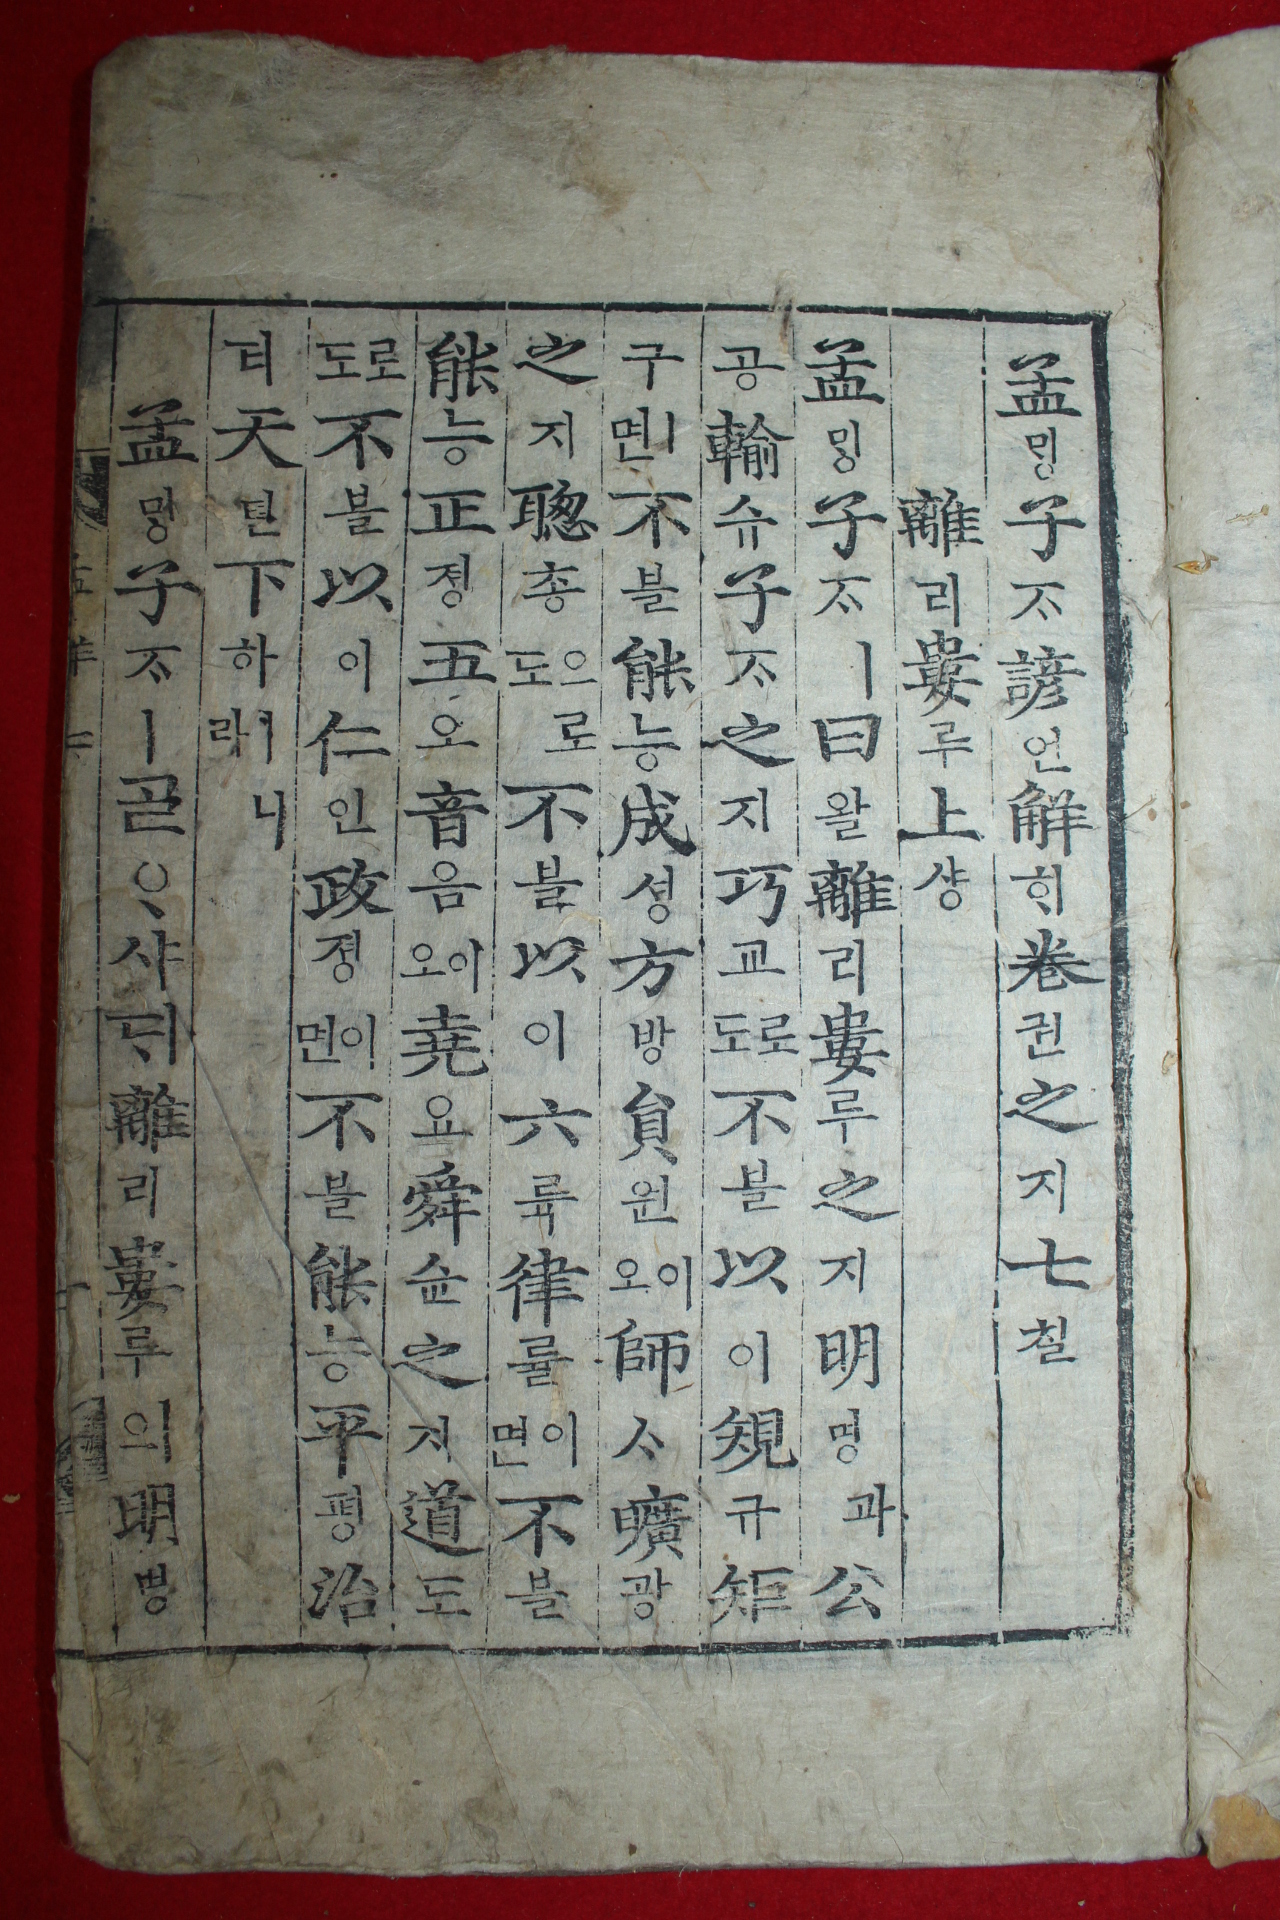 孟ᄆᆡᆼ子ᄌᆞ諺언解ᄒᆡ卷권之지七칠
離리婁루上샹
孟ᄆᆡᆼ子ᄌᆞㅣ曰왈離리婁루之지明명과公
공輸슈子ᄌᆞ之지巧교로도不블以이規규矩
구ㅣ면不블能능成셩方방員원이오師ᄉᆞ曠광
之지聰총으로도不블以이六륙律률이면不블
能능正졍五오音음이오堯요舜슌之지道도
로도不블以이仁인政졍이면不블能능平평治
티天텬下하ㅣ니라
孟ᄆᆡᆼ子ᄌᆞㅣ ᄀᆞᆯᄋᆞ샤ᄃᆡ離리婁루의明명